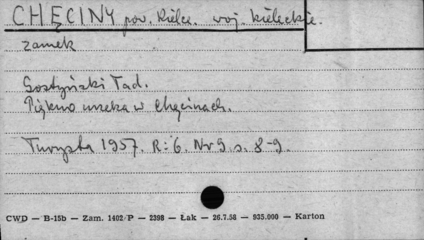 CHĘCINY pow. Kielce. woj. kieleckie.
zamek
Gostyński Tad.
Piękno urzeka w Chęcinach.
Turysta 1957. R: 6. Nr 9. s. 8-9.
CWD — B-15b — Zam. 1402/P — 2398 — Łak — 26.7.58 — 935.000 — Karton